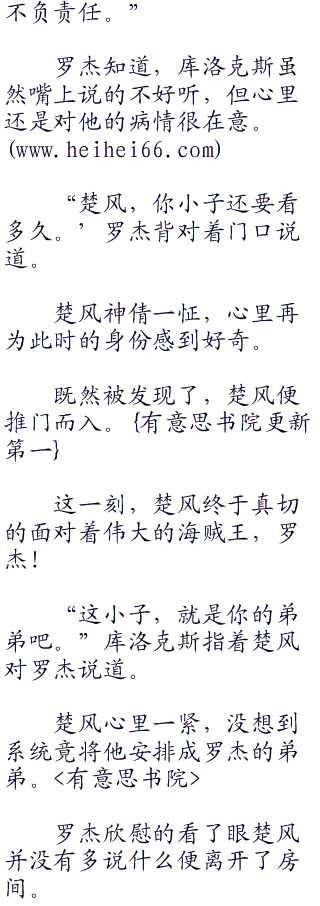 不负责任。”
罗杰知道，库洛克斯虽
然嘴上说的不好听，但心里
还是对他的病情很在意。
(www.heihei66.com)
“楚风，你小子还要看
多久。’罗杰背对着门口说
道。
楚风神倩一怔，心里再
为此时的身份感到好奇。
既然被发现了，楚风便
推门而入。{有意思书院更新
第一}
这一刻，楚风终于真切
的面对着伟大的海贼王，罗
杰！
“这小子，就是你的弟
弟吧。”库洛克斯指着楚风
对罗杰说道。
楚风心里一紧，没想到
系统竟将他安排成罗杰的弟
弟。<有意思书院>
罗杰欣慰的看了眼楚风
并没有多说什么便离开了房
间。